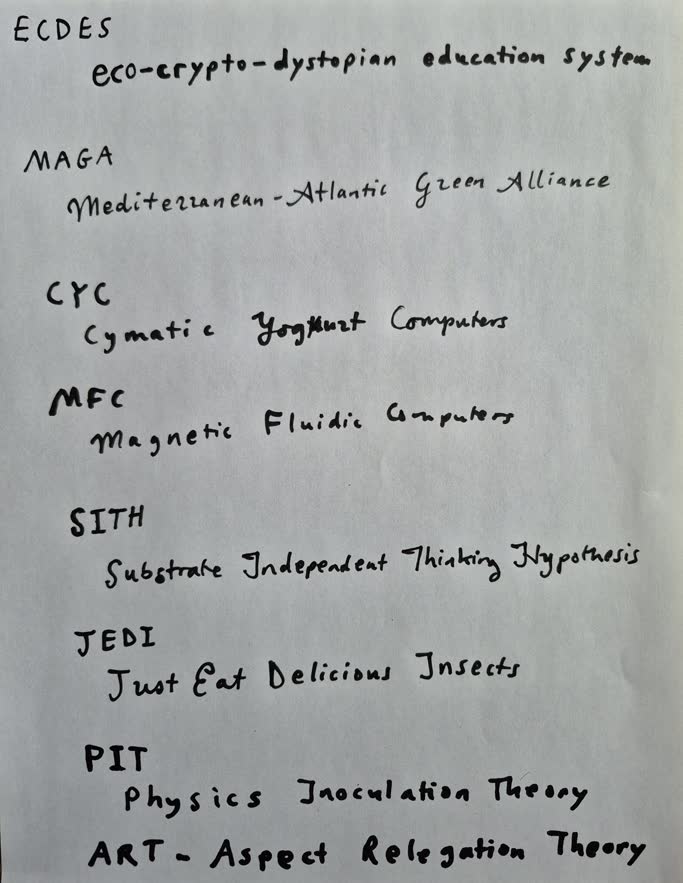 ECDES
eco-crypto-dystopian education system
MAGA
Mediterranean-Atlantic Green Alliance
CYC
Cymatic Yoghurt Computers
MFC
Magnetic Fluidic Computers
SITH
Substrate Independent Thinking Hypothesis
JEDI
Just Eat Delicious Insects
PIT
Physics Inoculation Theory
ART - Aspect Relegation Theory